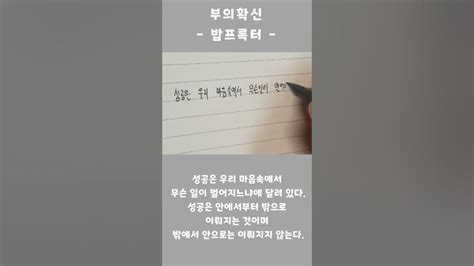 부의확신
- 밥프록터 -
성공은 우리 마음속에서 무슨일이
성공은 우리 마음속에서
무슨 일이 벌어지느냐에 달려 있다.
성공은 안에서부터 밖으로
이뤄지는 것이며
밖에서 안으로는 이뤄지지 않는다.